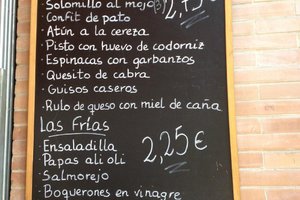 • Solomillo al mojo(3) 2,75€
• Confit de pato
• Atún a la cereza
• Pisto con huevo de codorniz
• Espinacas con garbanzos
• Quesito de cabra
• Guisos caseros
• Rulo de queso con miel de caña
Las Frías
• Ensaladilla 2,25€
• Papas ali oli
• Salmorejo
• Boquerones en vinagre